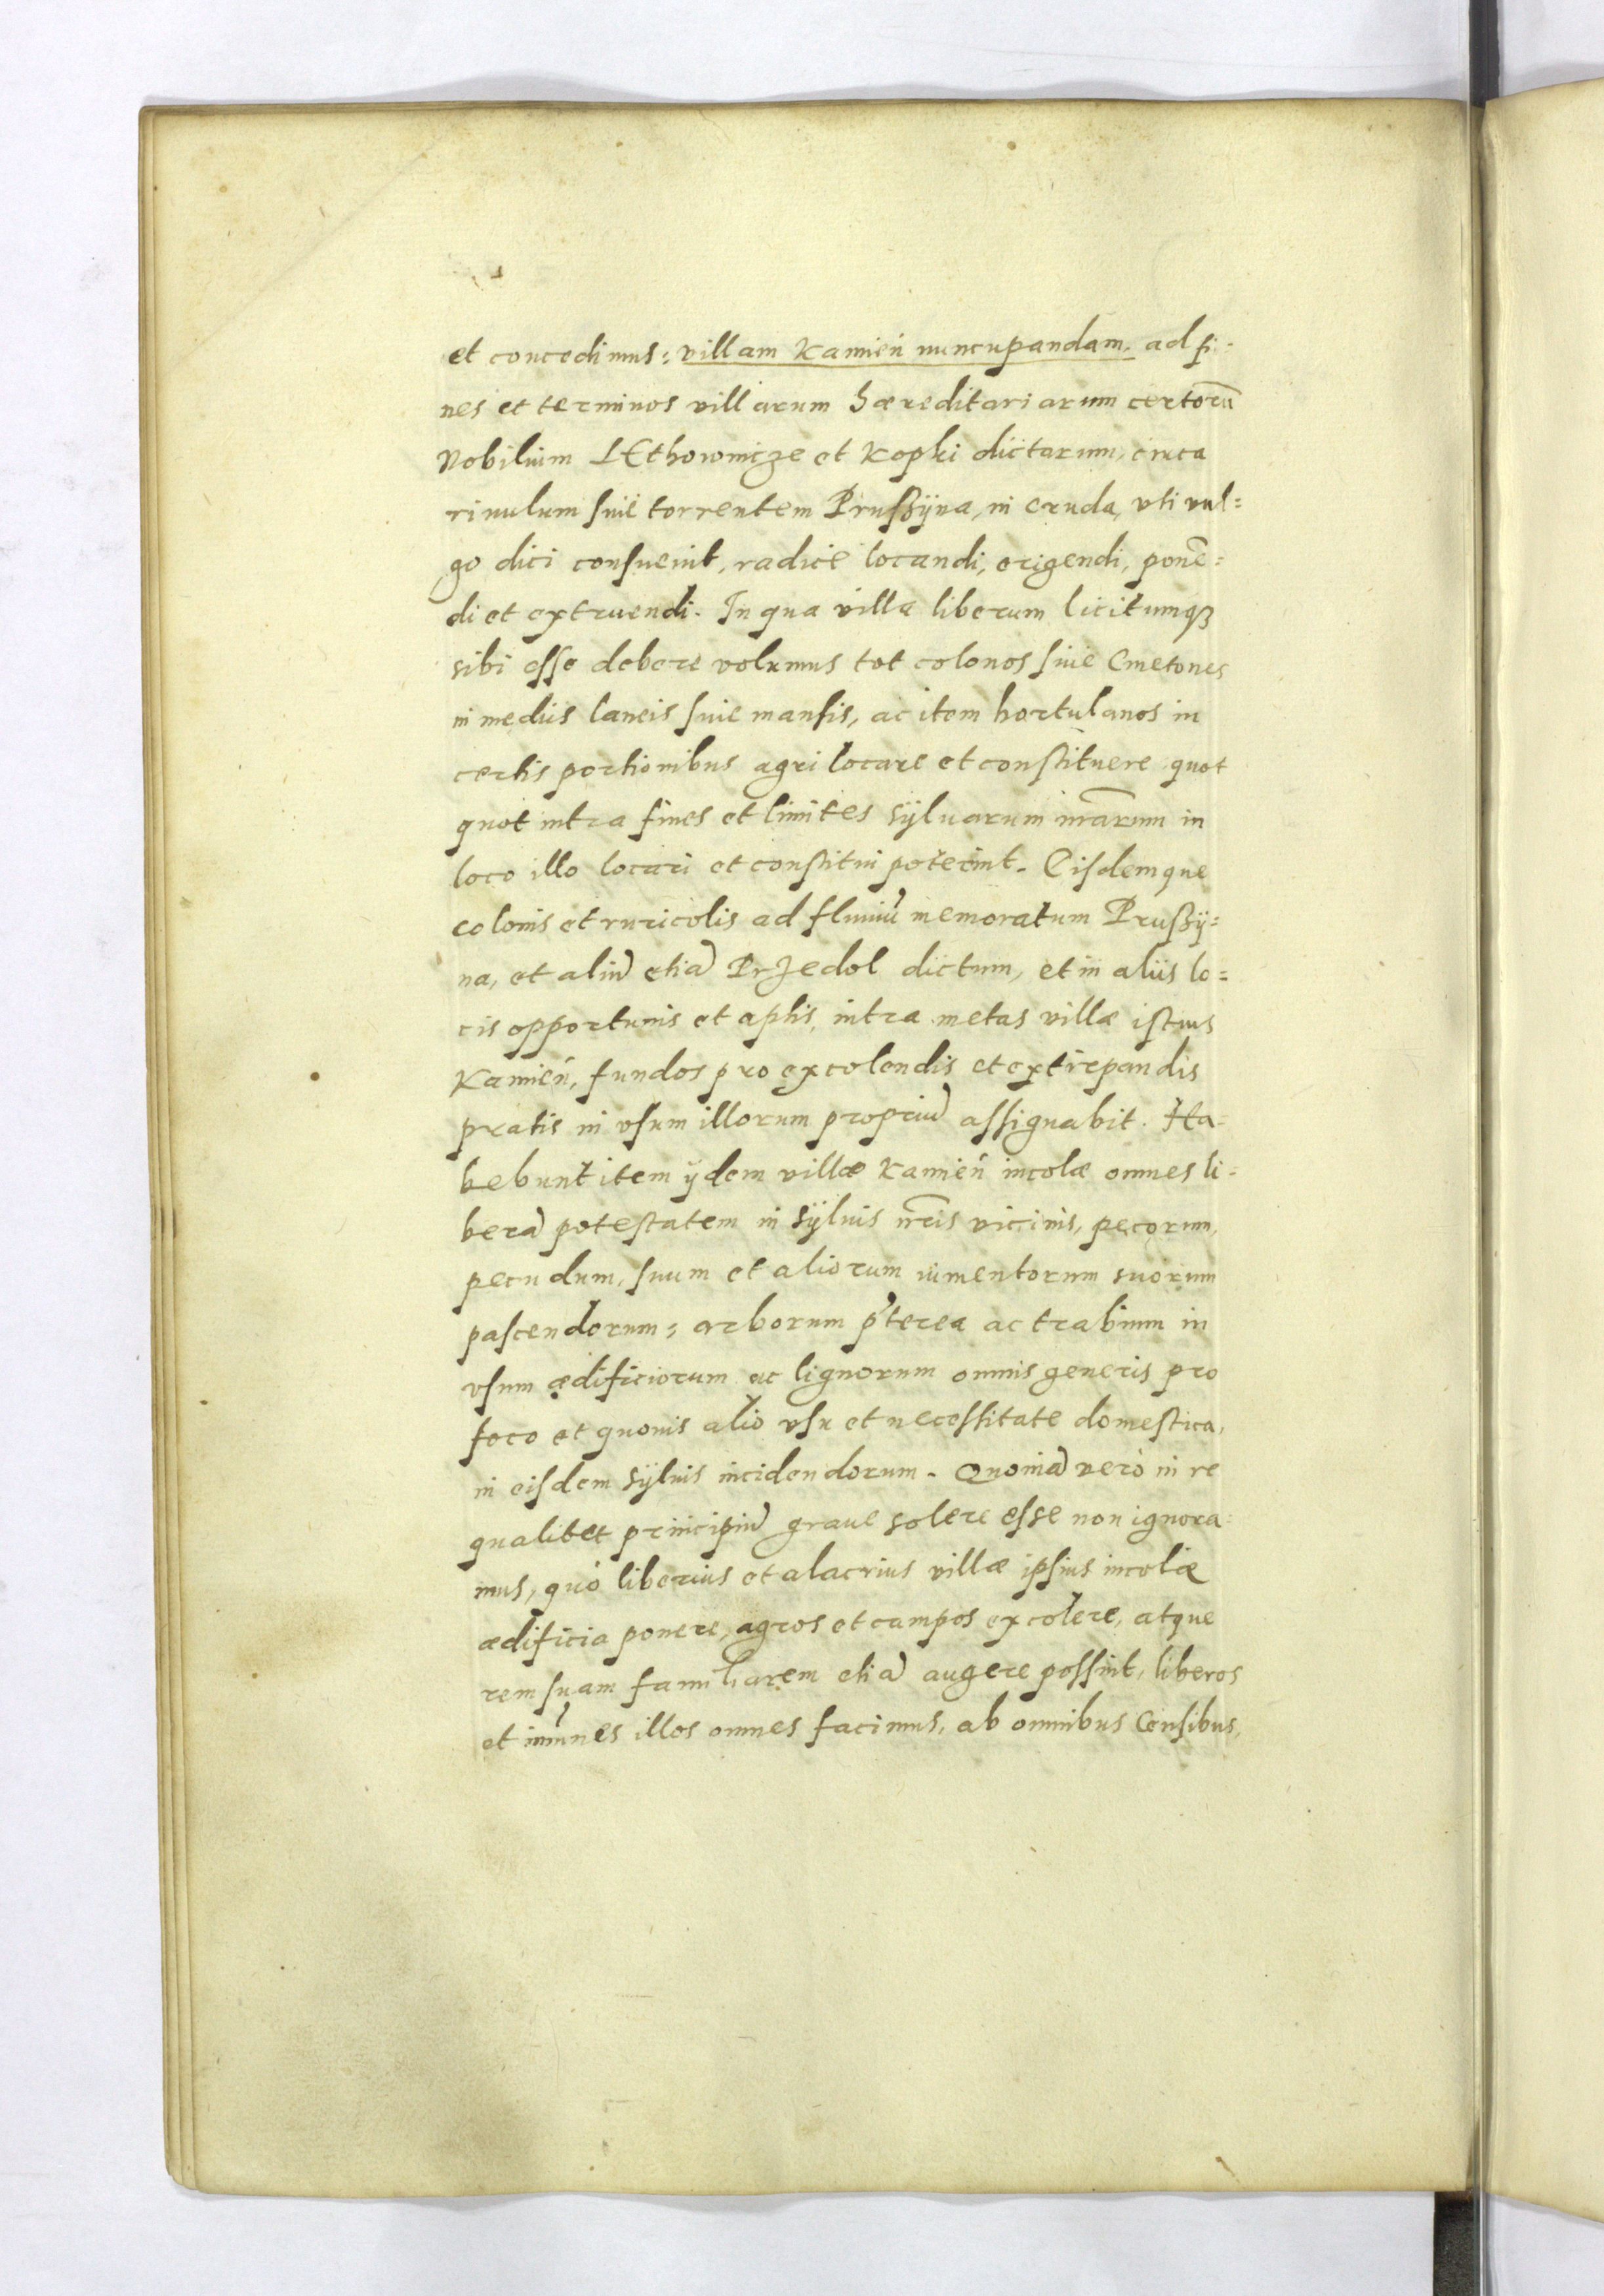 et concedimus: villam Kamień nuncupandam. ad fi-
nes et terminos villarum hæreditariarum certorū
Nobilium LEthownicze et Kopki dictarum, circa
riuulum siue torrentem Prußÿna, in cruda, vti vul=
go dici consueuit, radice locandi, erigendi, ponē=
di et extruendi. In qua villa liberum licitumqȝ
sibi esse debere volumus tot colonos siue Cmetones
in mediis laneis siue mansis, ac item hortulanos in
certis portionibus agri locare et constituere quot
quot intra fines et limites sÿluarum nr̄arum in
loco illo locari et constitui poterint. Eisdemque
colonis et ruricolis ad fluuiū memoratum Prußÿ=
na, et aliū etiā Przedol dictum, et in aliis lo=
cis opportunis et aptis, intra metas villæ istius
Kamień, fundos pro excolendis et extirpandis
pratis in vsum illorum propriū assignabit. Ha-
bebunt item ÿdem villæ Kamień incolæ omnes li-
berā potestatem in sÿluis nr̄is vicinis, pecorum,
pecudum, suum et aliorum iumentorum suorum
pascendorum; arborum p̄terea ac trabium in
vsum ædificiorum ac lignorum omnis generis pro
foco et quouis alio vsu et necessitate domestica,
in eisdem sÿluis incidendorum. Quoniā verò in re
qualibet principiū graue solere esse non ignora-
mus, quò liberius et alacrius villæ ipsius incolæ
ædificia ponere, agros et campos excolere, atque
rem suam familiarem etiā augere possint, liberos
et im̄unes illos omnes facimus, ab omnibus Censibus,